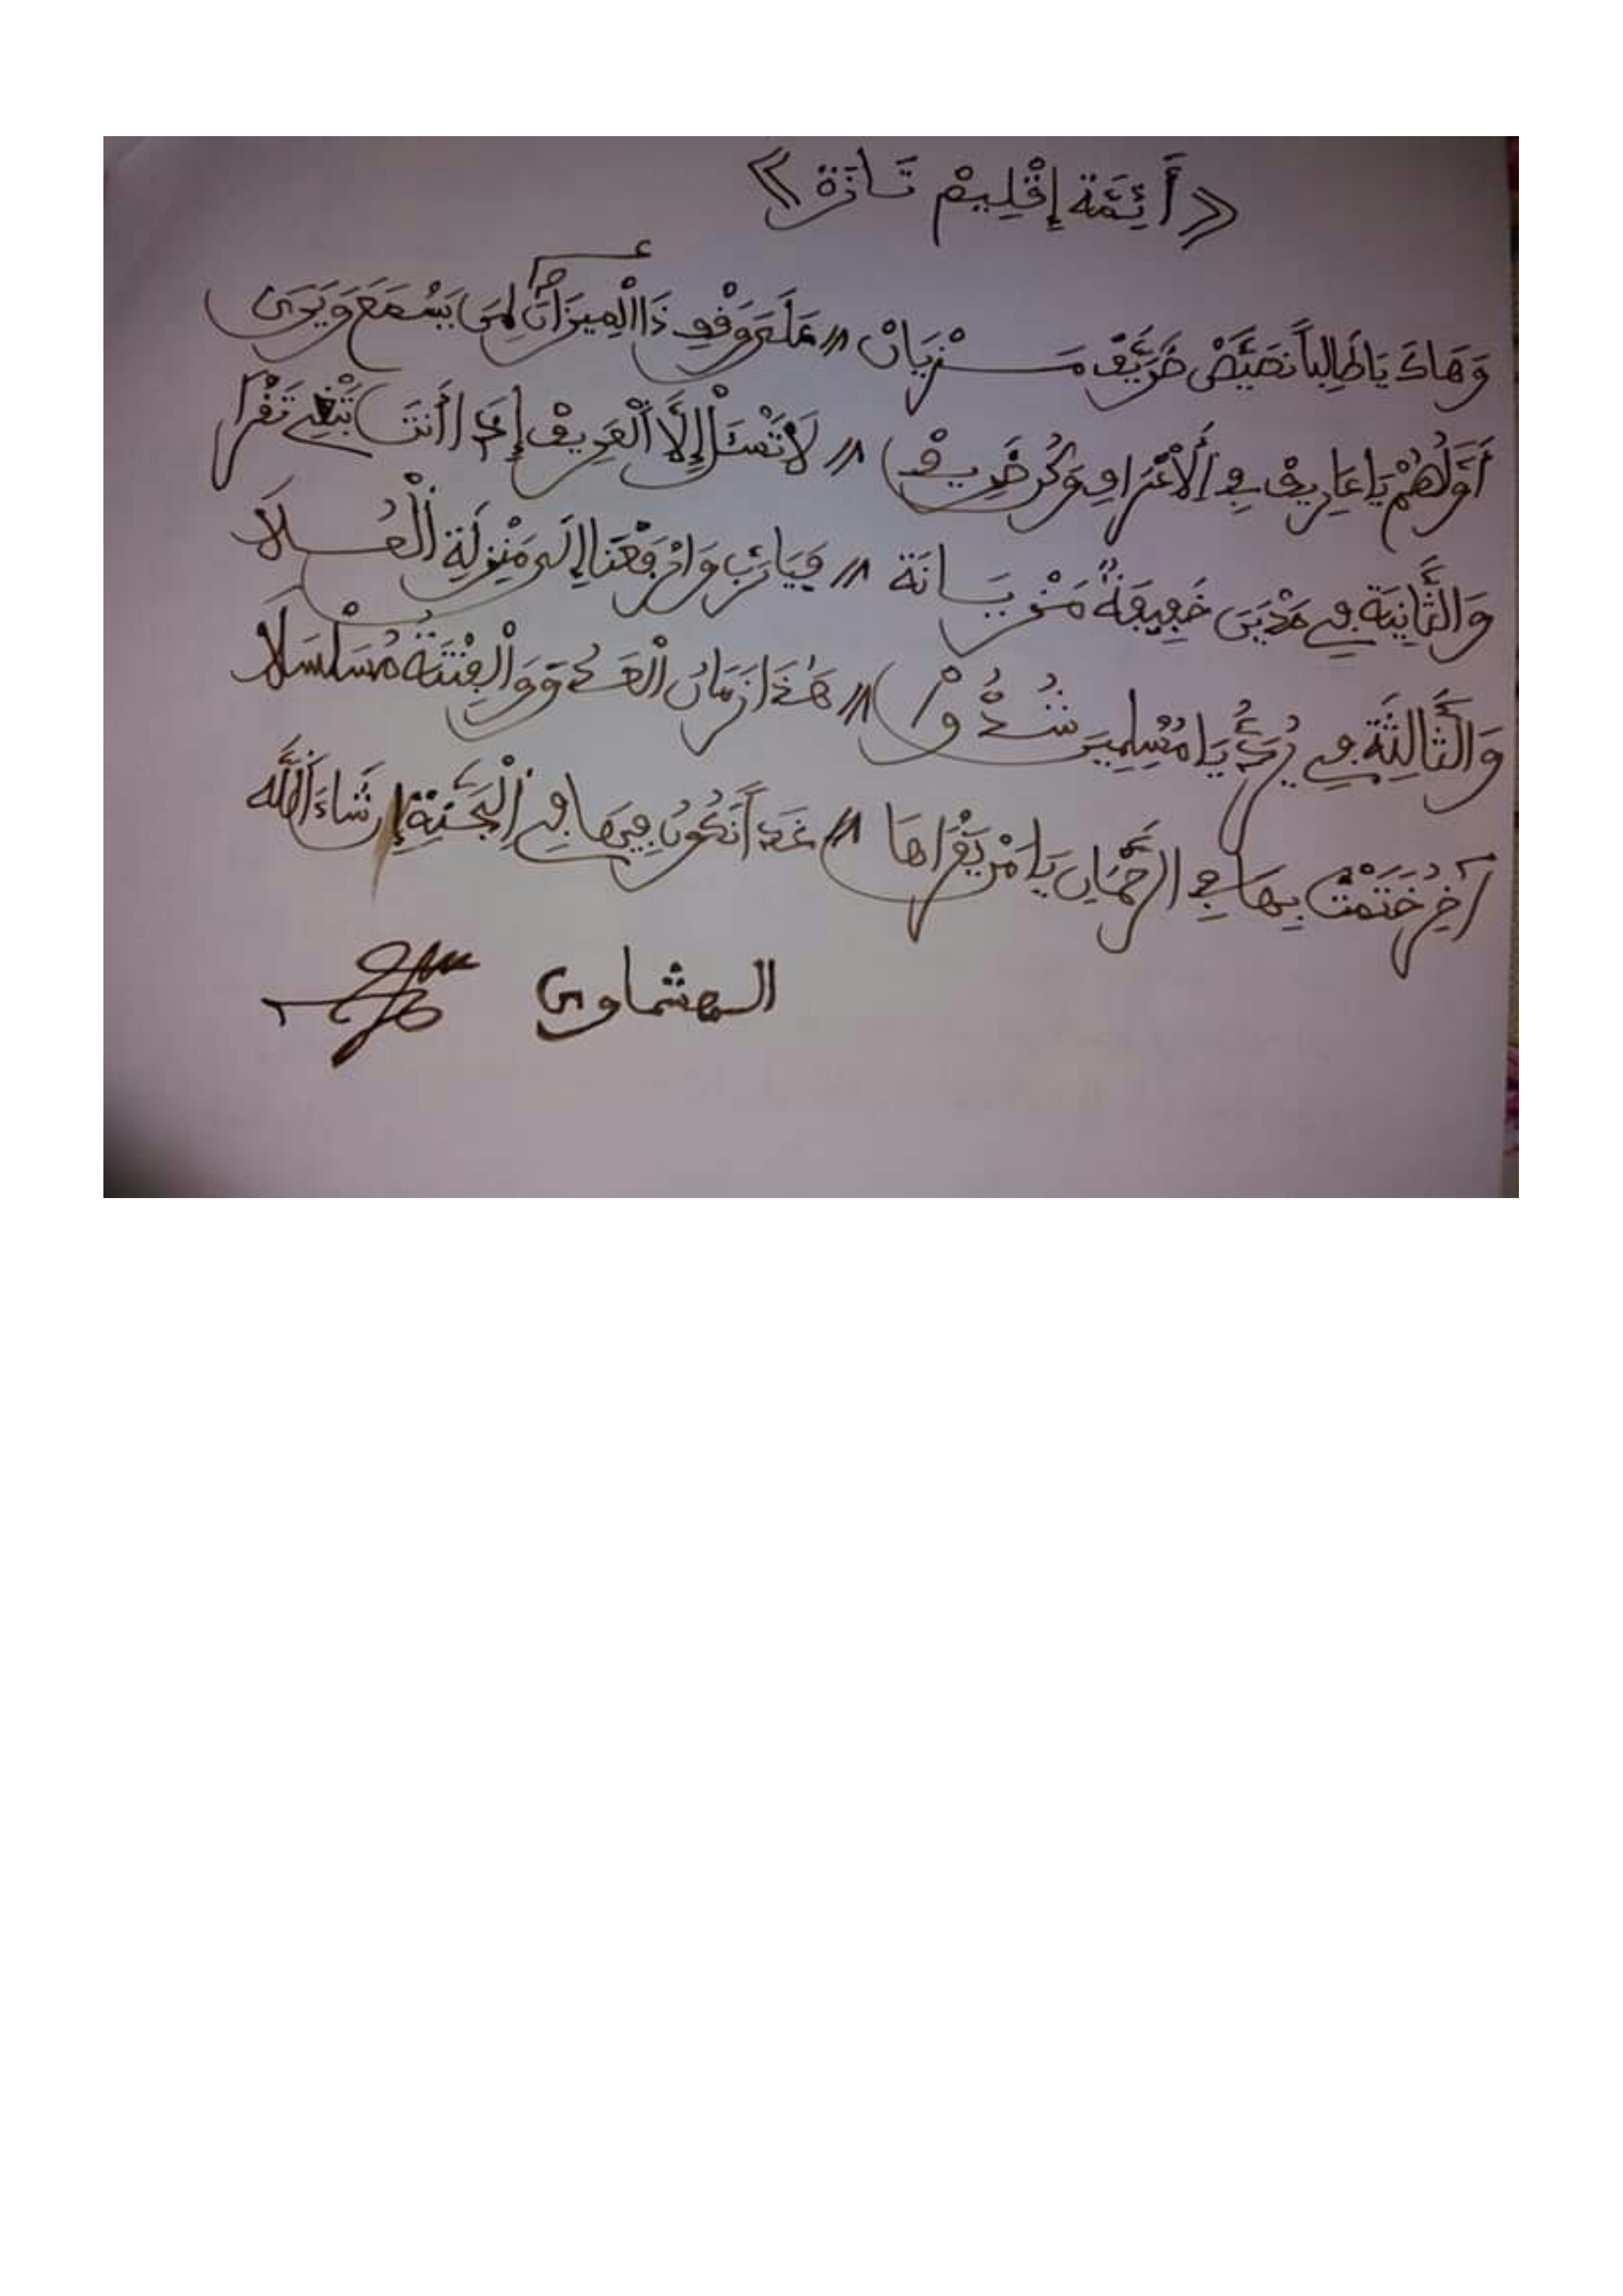 « أَئِمَّة إِقْلِيمْ تَازَة »
وَهَاكَ يَا طَالِباً نَصَيَّصْ ظَرَيَّفْ مَزْيَانْ // عَلَى وَفْقِ ذَا الْمِيزَانْ لِمَن يَسْمَعَ وَيَرَى
أَوَّلُهُمْ يَا عَارِيفْ فِي الْأَعْرَافِ وَكُن ظَرِيفْ // لَا تَسْئَلْ إِلَّا الْعَرِيفْ إِذَا أَنتَ تَبْغِي تَقْرَا
وَالثَّانِيَة فِي مَدْيَنَ خَفِيفَةٌ مَزْيَانَة // فَيَا رَبِّ وَارْفَعْنَا إِلَى مَنْزِلَةِ الْعُلَا
وَالثَّالِثَة فِي يَا مُسْلِمِينَ // هَذَا زَمَانُ الْعَدُوّ وَالْفِتْنَة مُسَلْسَلَا
آخِرُ خَتَمْتُ بِهَا فِي الرَّحْمَانِ يَا مْن يَقْرَاهَا // غَدَ أَنَكُونُ فِيهَا فِي الْجَنَّةِ إِن شَاءَ اللَّه
الهشماوي